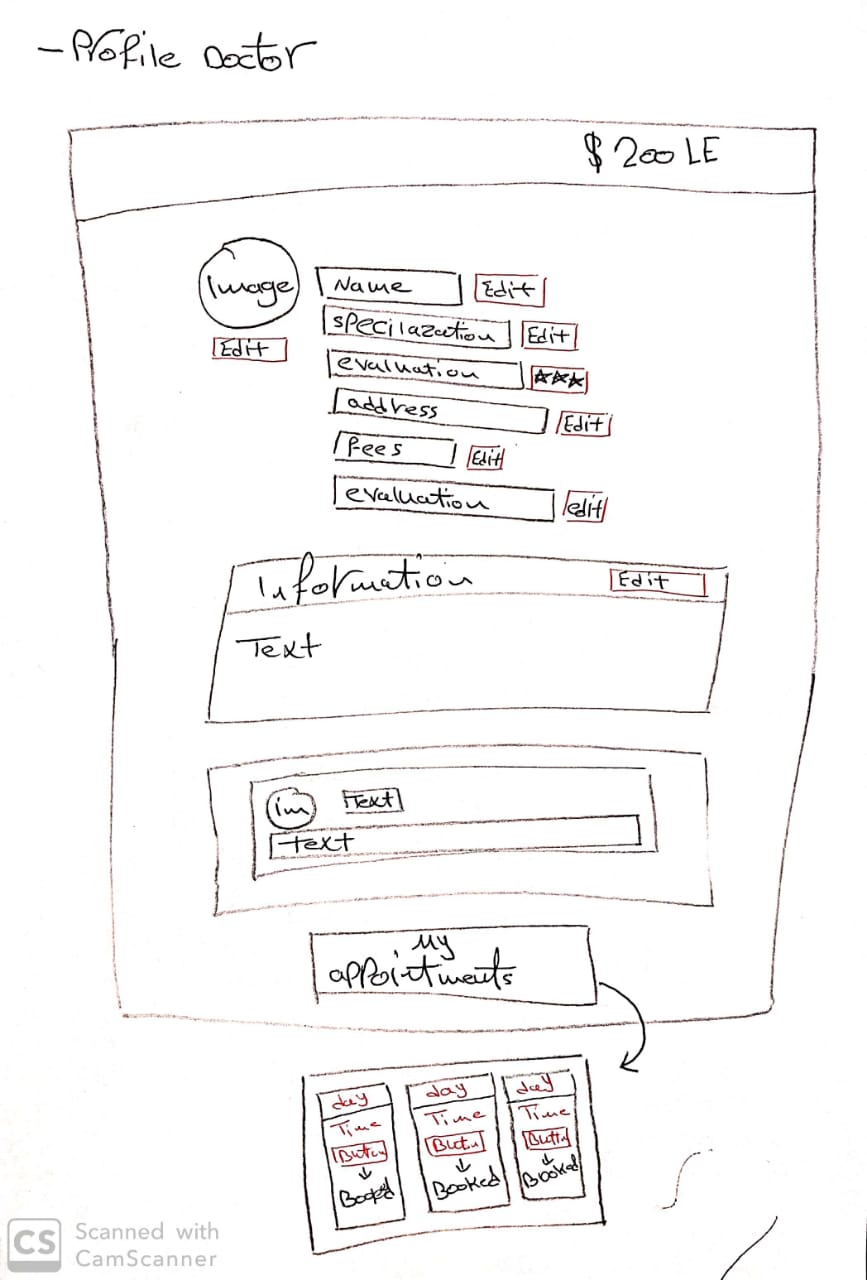 - Profile Doctor
$ 200 LE
Image
Edit
Name Edit
specilazation Edit
evaluation ★★★
address Edit
Fees Edit
evaluation edit
Information Edit
Text
im Text
Text
My
appointments
day day day
Time Time Time
Button Button Button
Booked Booked Booked
CS Scanned with
CamScanner